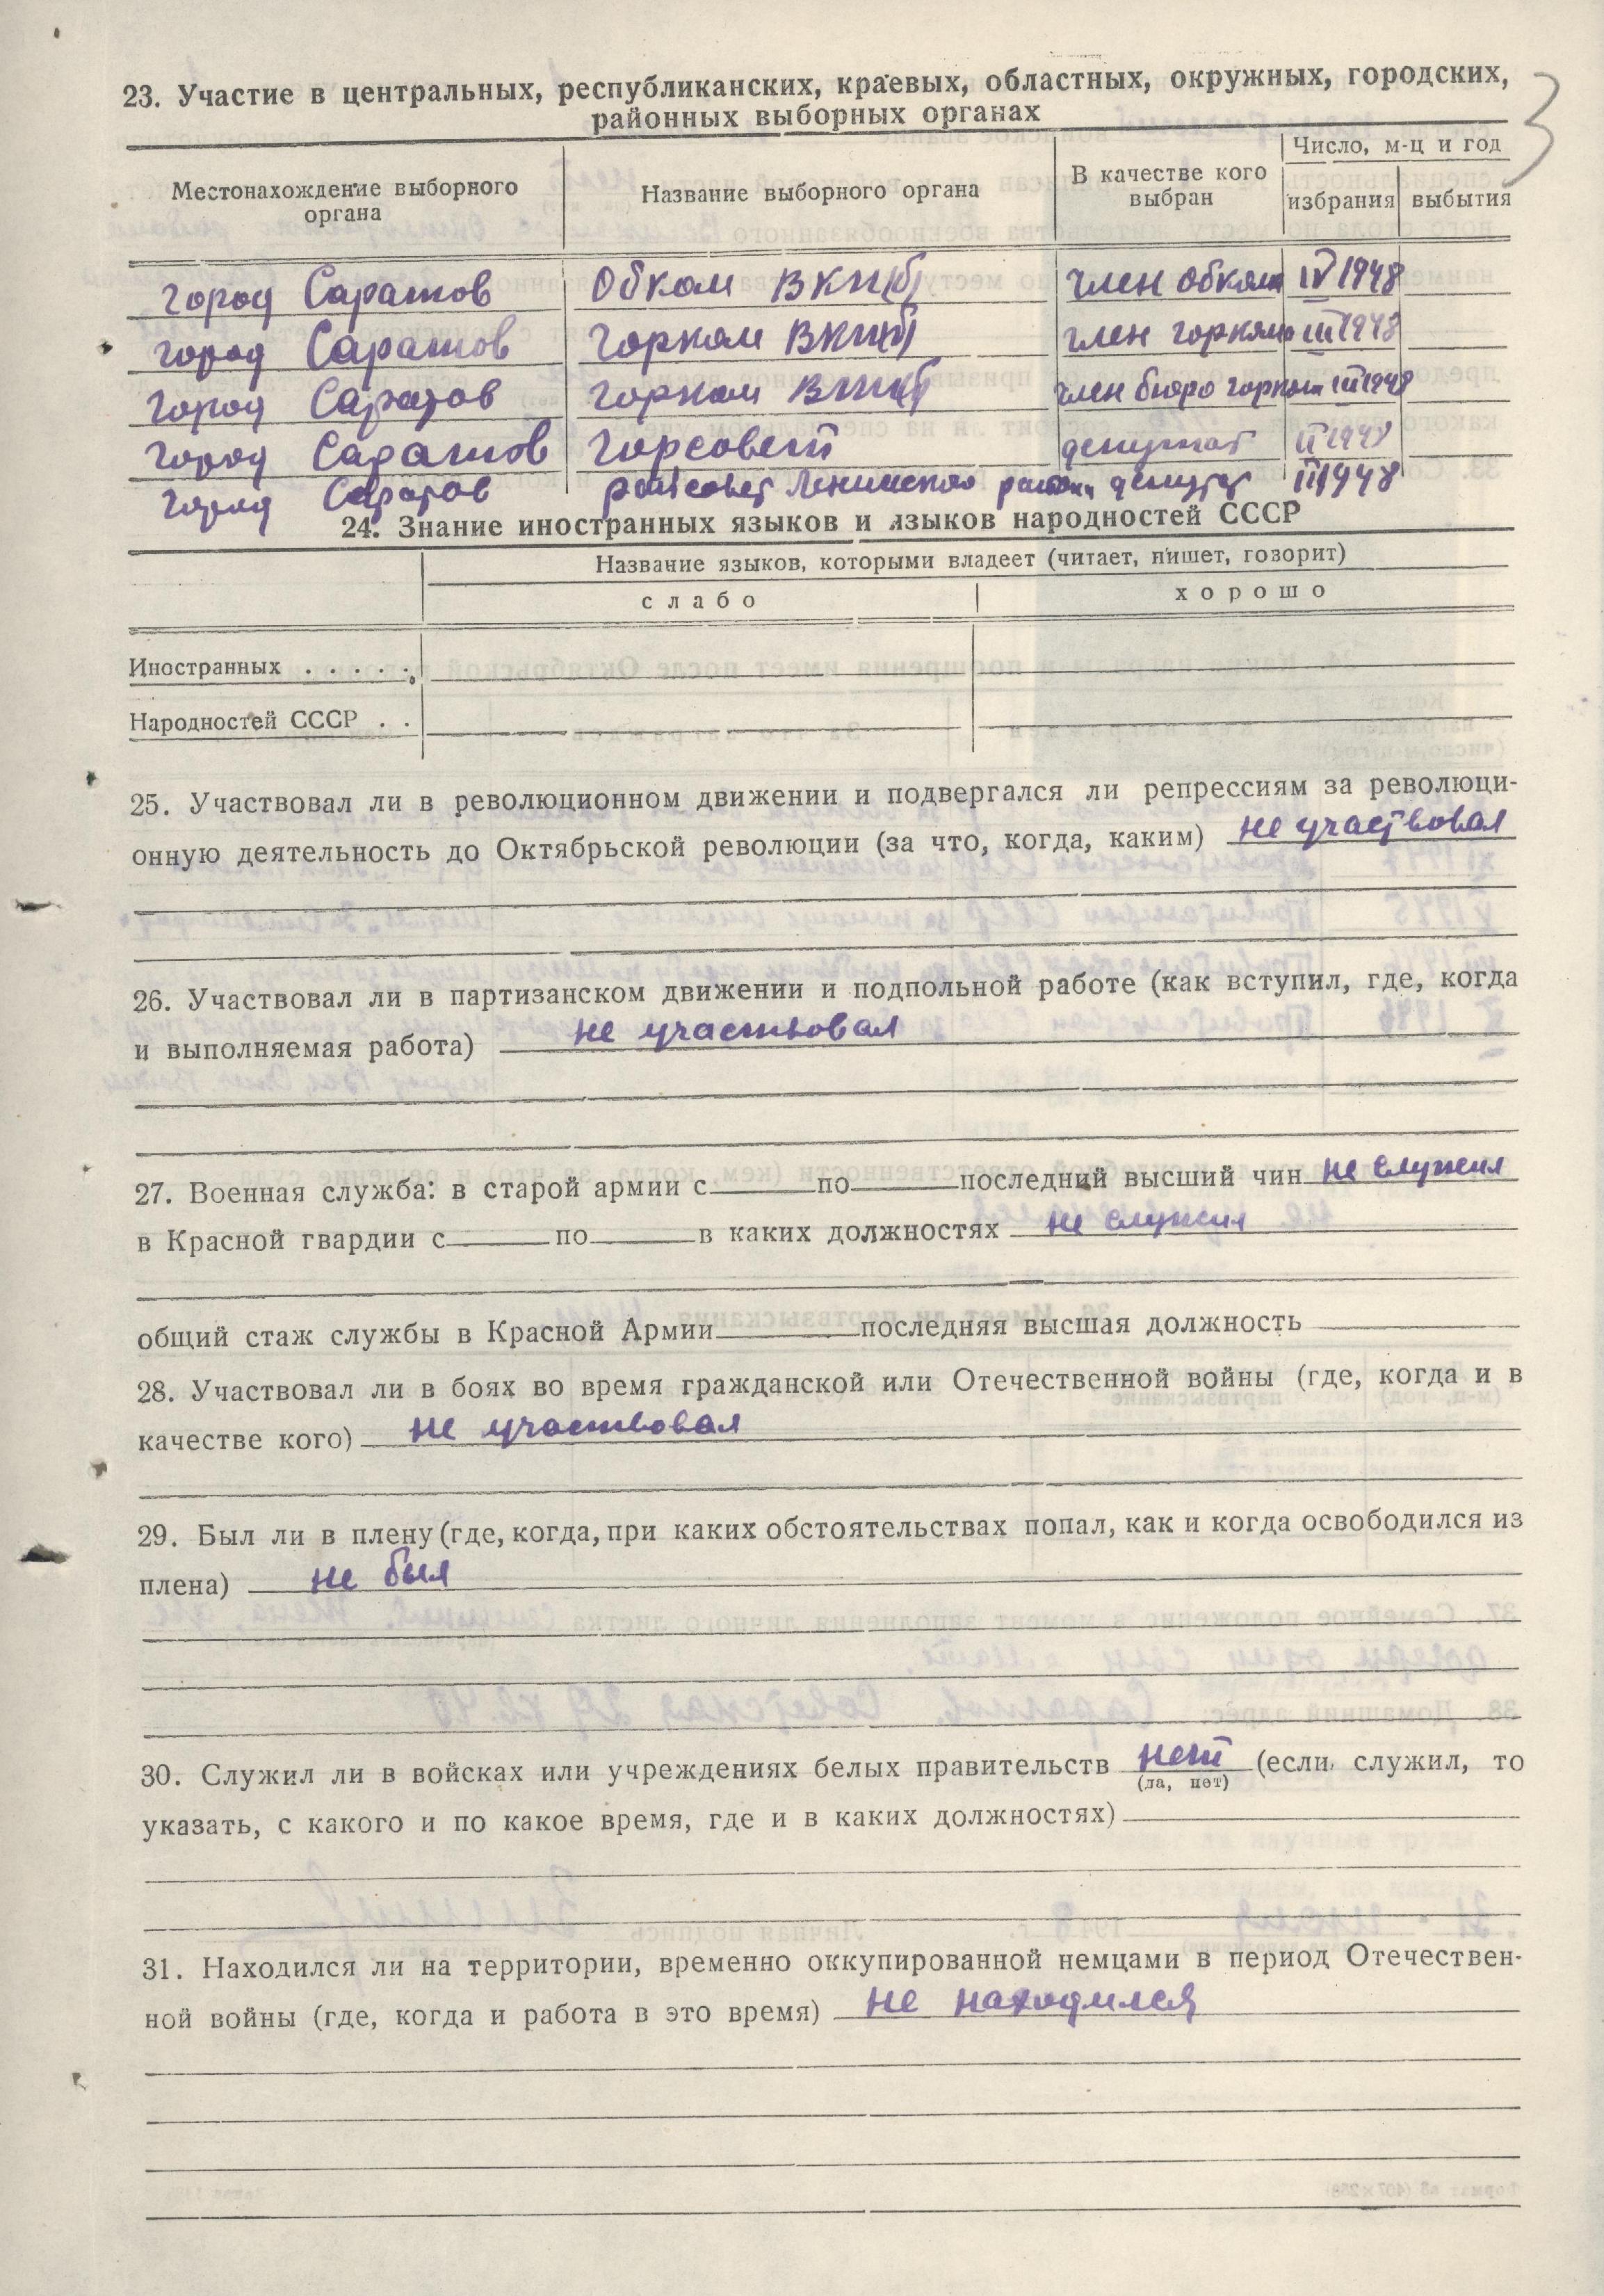 3
23. Участие в центральных, республиканских, краевых, областных, окружных, городских,
районных выборных органах
Местонахождение выборного органа | Название выборного органа | В качестве кого выбран | Число, м-ц и год
избрания | выбытия
город Саратов | Обком ВКП(б) | член обкома | IV 1948
город Саратов | Горком ВКП(б) | член горкома | III 1948
город Саратов | Горком ВКП(б) | член бюро горкома | III 1948
город Саратов | Горсовет | депутат | II 1948
город Саратов | райсовет Ленинского района | депутат | III 1948
24. Знание иностранных языков и языков народностей СССР
Название языков, которыми владеет (читает, пишет, гозорит)
слабо | хорошо
Иностранных . . . . .
Народностей СССР . .
25. Участвовал ли в революционном движении и подвергался ли репрессиям за революци-
онную деятельность до Октябрьской революции (за что, когда, каким) не участвовал
26. Участвовал ли в партизанском движении и подпольной работе (как вступил, где, когда
и выполняемая работа) не участвовал
27. Военная служба: в старой армии с по последний высший чин не служил
в Красной гвардии с по в каких должностях не служил
общий стаж службы в Красной Армии последняя высшая должность
28. Участвовал ли в боях во время гражданской или Отечественной войны (где, когда и в
качестве кого) не участвовал
29. Был ли в плену (где, когда, при каких обстоятельствах попал, как и когда освободился из
плена) не был
30. Служил ли в войсках или учреждениях белых правительств нет (если служил, то
(да, нет)
указать, с какого и по какое время, где и в каких должностях)
31. Находился ли на территории, временно оккупированной немцами в период Отечествен-
ной войны (где, когда и работа в это время) не находился